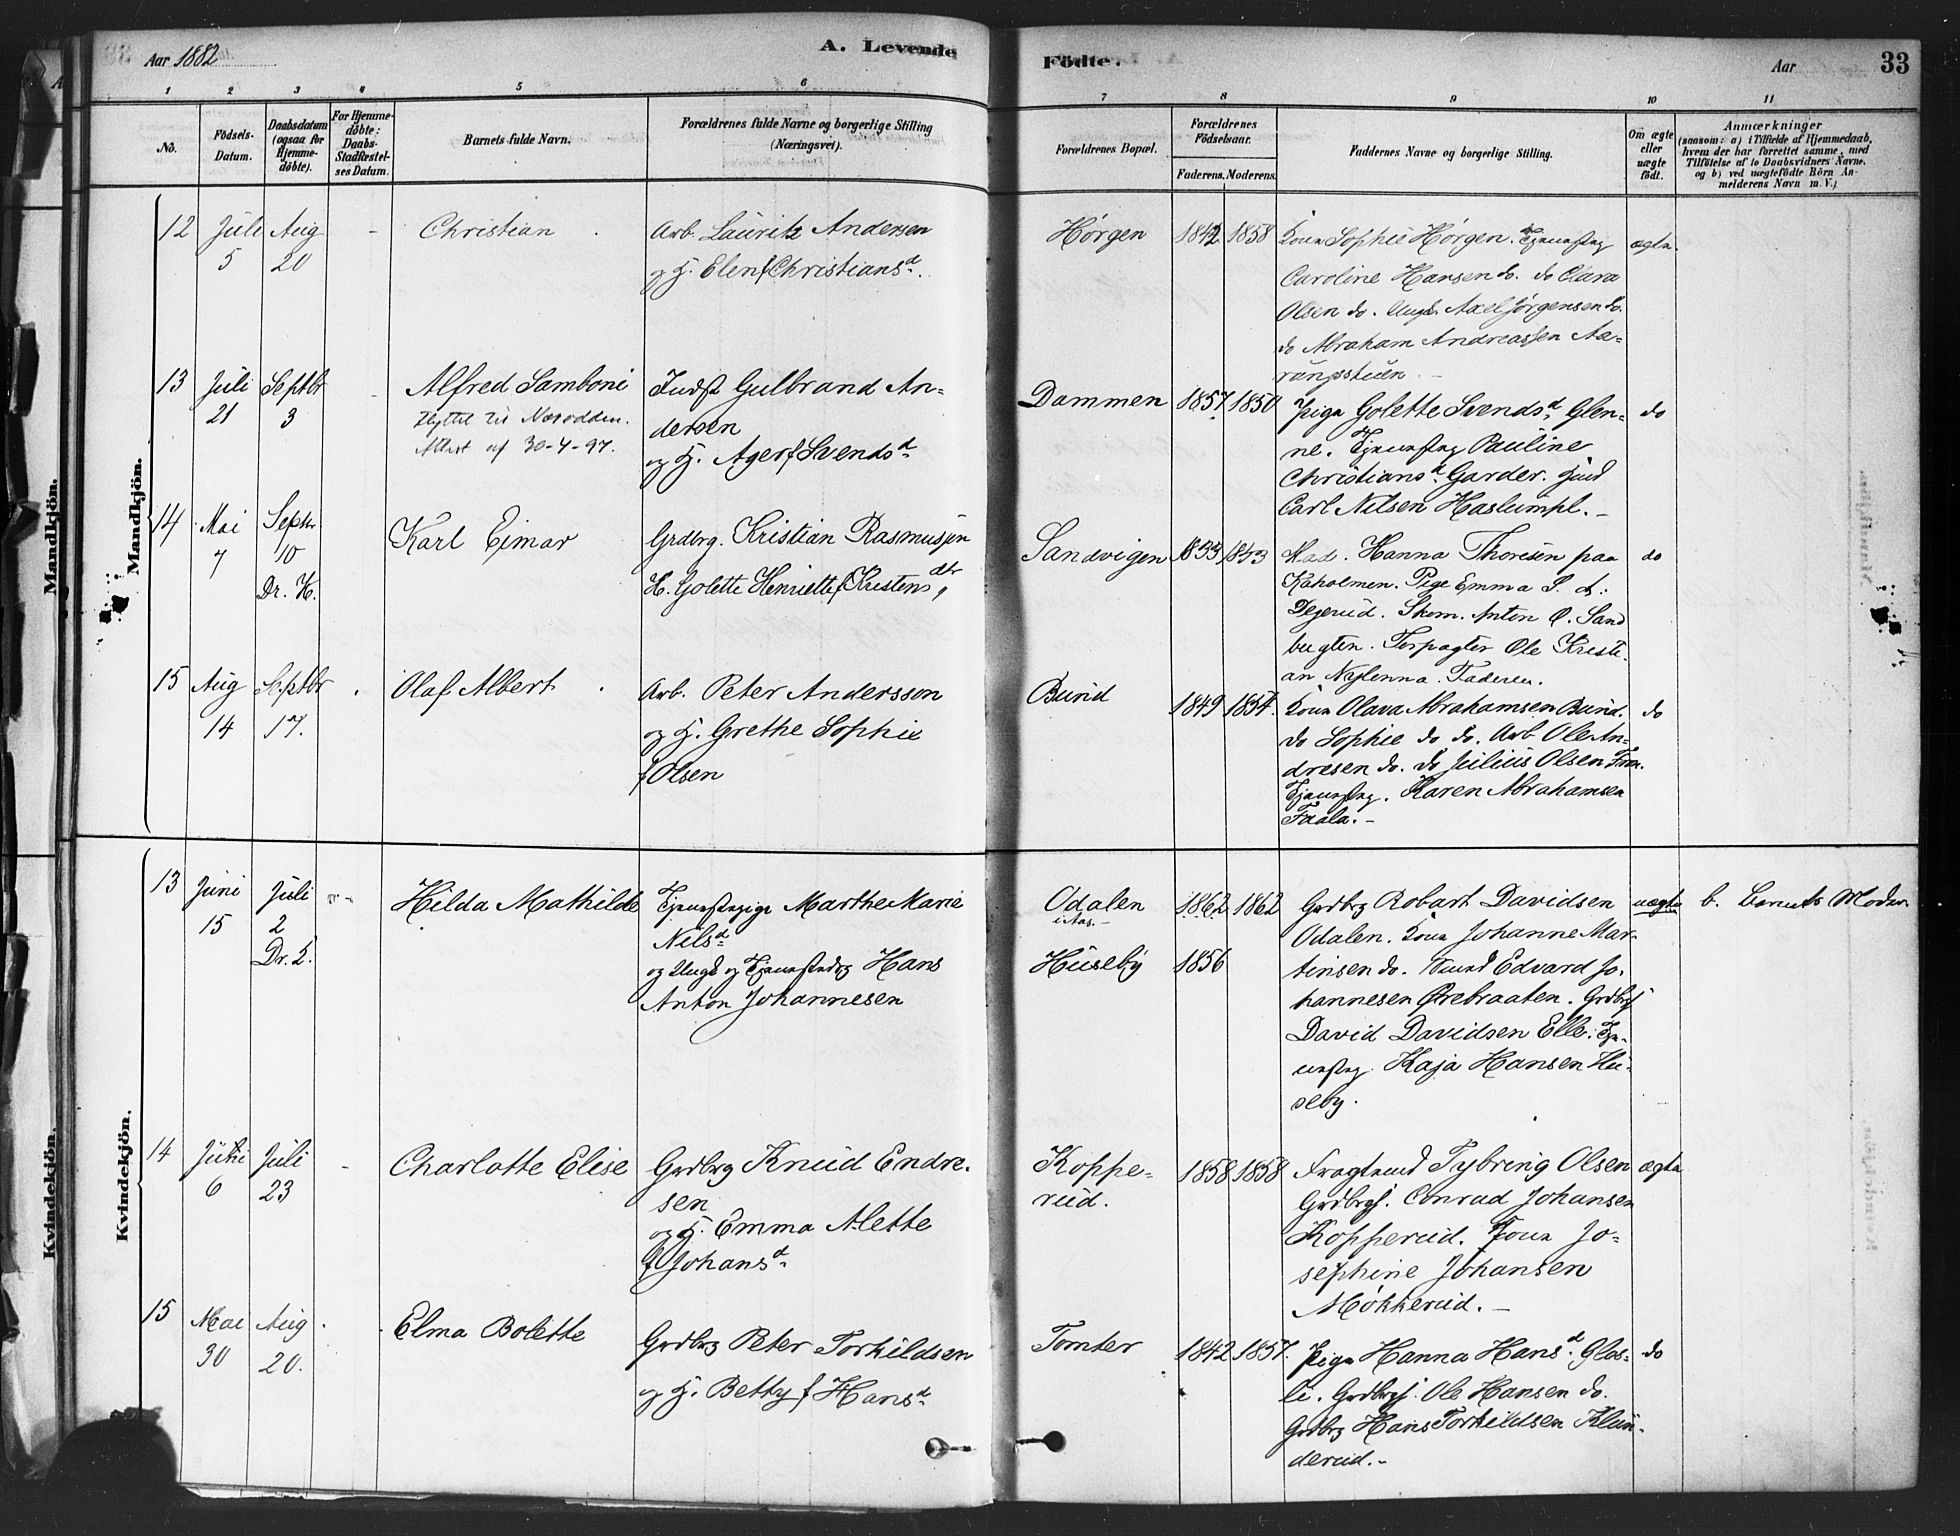 Aar 1882
A. Levende
Födte.
Aar
33
1 2 3 4 5 6 7 8 9 10 11
No.
Födsels-Datum.
Daabsdatum (ogsaa for Hjemme-döbte).
For Hjemme-döbte: Daabs-Stadfæstel-ses Datum.
Barnets fulde Navn.
Forældrenes fulde Navne og borgerlige Stilling (Næringsvei).
Forældrenes Bopæl.
Forældrenes Födselsaar.
Faderens. Moderens.
Faddernes Navne og borgerlige Stilling.
Om ægte eller uægte födt.
Anmærkninger
(saasom: a) i Tilfælde af Hjemmedaab,
hvem der har forrettet samme, med
Tilföielse af to Daabsvidners Navne.
og b) ved uægtefödte Börn An-
melderens Navn m. V.)
Mandkjön.
Mandkjön.
12 Juli 5 Aug 20 - Christian
Arb. Lauritz Andersen
og H. Elen f Christiansd.
Hørgen 1842 1858
Kone Sophie Hørgen.
Caroline Hansen do. do Clara
Olsen do. Ungk. Axel Jørgensen do.
do Abraham Andreassen Aæ-
rungsstuen -
ægte
13 Juli 21 Septbr 3 - Alfred Samboni
flyttet til Næsodden.
Attest af 30-4-97.
Indst Gulbrand An-
dersen
og H. Ager f Svendsd
Dammen 1857 1850
Pige Golette Svendsd Glen-
ne. Pauline
Christiansd Garder.
Carl Nilsen Haslumpl. -
do
14 Mai 7 Septbr 10 Dr. K.
Karl Eimar
Grdbrg. Kristian Rasmussen
H. Golette Henriette f Kristensdtr
Sandvigen 1853 1853
Mad. Hanna Thoresen paa
Kaholmen. Pige Emma
Degerud. Skom. Anton O. Sand
bugten. Forpagter Ole Kristi-
an Nylenna. Faderen.
do
15 Aug 14 Septbr 17.
Olaf Albert
Arb. Peter Andersson
og H. Grethe Sophie
f Olsen
Bund 1849 1854.
Kone Olava Abrahamsen Bund.
do Sophie do do. Arb Ole An-
dresen do. do Julius Olsen
Karen Abrahamsen
Faala. -
do
Kvindekjön.
Kvindekjön.
13 Juni 15 Juli 2 Dr. L.
Hilda Mathilde
Tjenestepige Marthe Marie
Nilsd
og Ungk og Hans
Anton Johannesen
Odalen
i Aas. -
Huseby 1862 1862
1856
Grdbrg Robart Davidsen
Odalen. Kone Johanne Mar-
tinsen do. Edvard Jo-
hannesen Ørebraaten. Grdbrgs
David Davidsen Elle. Tje-
Kaja Hansen Hu-
seby.
uægte b. Barnets Moder
14 Juni 6 Juli 23 -
Charlotte Elise
Grdbrg Knud Endre-
sen
og H. Emma Alette
f Johansd
Koppe-
rud. 1858 1858
Tybring Olsen
Grdbrgs. Conrad Johansen
Kopperud. Kone Jo-
sephine Johansen
Møkkerud. -
ægte
15 Mai 30 Aug 20.
Elma Bolette
Grdbrg Peter Torkildsen
og H. Betty f Hansd
Tomter 1842 1857.
Pige Hanna Hansd. Glos-
li. Grdbrgs. Ole Hansen do.
Grdbrg Hans Torkildsen Klun-
derud. -
do